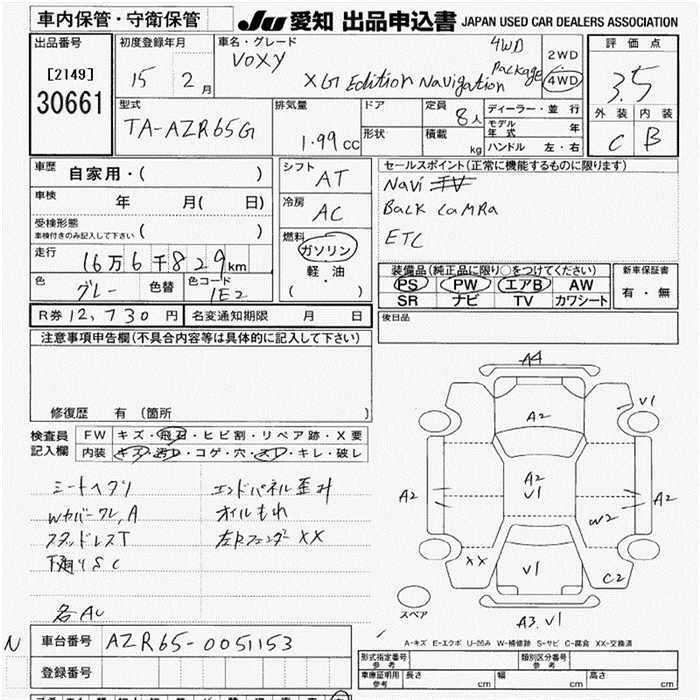 車内保管・守衛保管
JU 愛知 出品申込書 JAPAN USED CAR DEALERS ASSOCIATION
出品番号
[2149]
30661
初度登録年月
15 2月
車名・グレード
VOXY
X G Edition Navigation
4WD
Package
2WD
4WD
評価点
3.5
外装 内装
C B
型式
TA-AZR65G
排気量
1.99cc
ドア
形状
定員
8人
積載
kg
ディーラー・並行
モデル年式 年
ハンドル 左・右
車歴 自家用・( )
車検 年 月( 日)
受検形態
車検付きのみ記入して下さい ( )
走行
16万6千829km
色 グレー 色替 色コード 1E2
シフト
AT
冷房
AC
燃料
ガソリン
軽・油
( )
セールスポイント(正常に機能するものに限ります)
Navi
Back CaMRa
ETC
装備品(純正品に限り○をつけてください)
PS PW エアB AW
SR ナビ TV カワシート
新車保証書
有・無
R券 12,730円 名変通知期限 月 日
後日品
注意事項申告欄(不具合内容等は具体的に記入して下さい)
修復歴 有 (箇所 )
検査員
記入欄
FW キズ・飛石・ヒビ割・リペア跡・X要
内装 キズ・汚レ・コゲ・穴・スレ・キレ・破レ
シートヘタリ
Wカバークレ,A
スタッドレスT
下廻りSC
各AU
エンドパネル歪み
オイルもれ
左Rフェンダー XX
A4
V1
A2
A2
V1
A2
A2
W2
XX
V1
C2
A3.V1
スペア
A-キズ E-エクボ U-凹み W-補修跡 S-サビ C-腐食 XX-交換済
N 車台番号 AZR65-0051153
登録番号
形式指定番号
参考
類別区分番号
参考
車庫証明用
参考
長さ cm
幅 cm
高さ cm